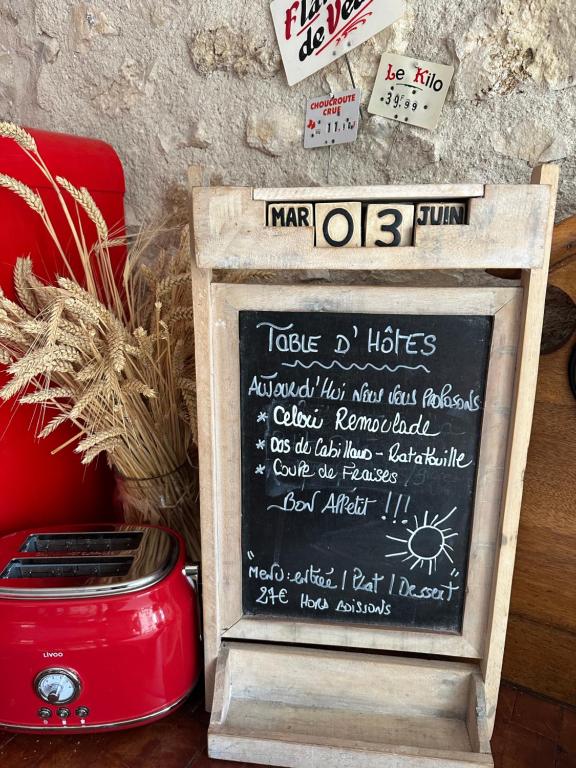 Fla
de Veau
Le Kilo
39F99
CHOUCROUTE
CRUE
11
MAR 03 JUIN
TABLE D'HÔTES
AUJOURD'HUI NOUS VOUS PROPOSONS
* Celeri Remoulade
* Dos de Cabillaud - Ratatouille
* Coupe de Fraises
BON APPÉTIT !!!
" Menu : entrée | Plat | Dessert "
27€ HORS BOISSONS
LIVOO